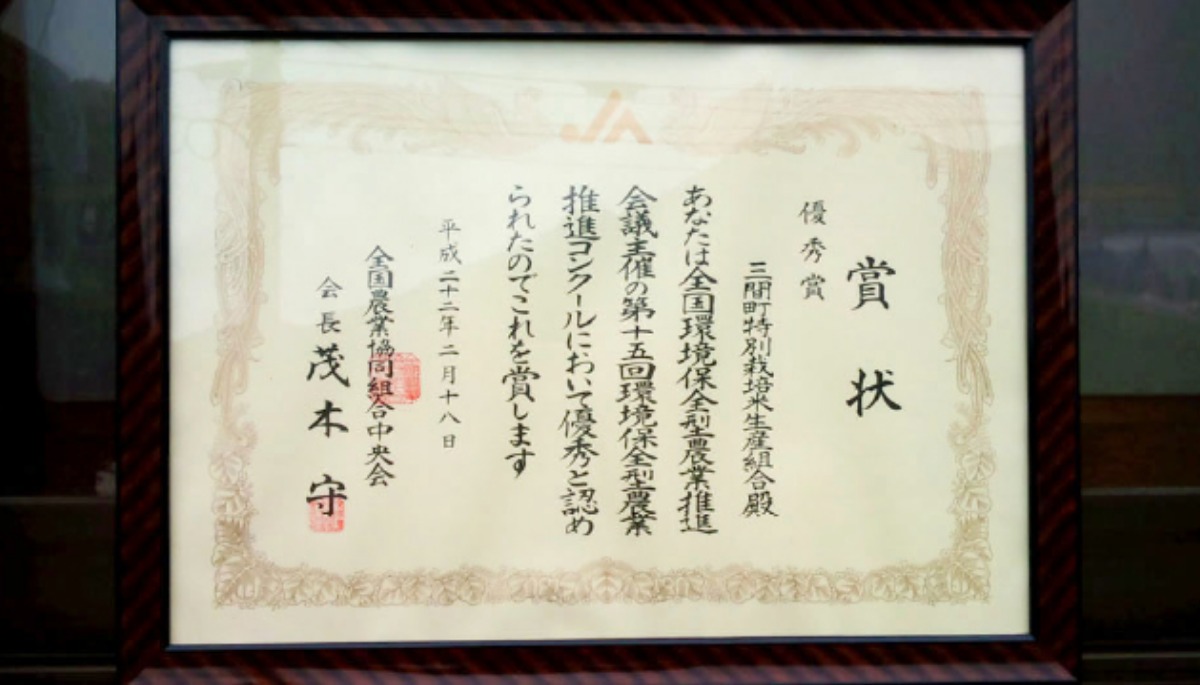 JA
賞状
優秀賞
三間町特別栽培米生産組合殿
あなたは全国環境保全型農業推進
会議主催の第十五回環境保全型農業
推進コンクールにおいて優秀と認め
られたのでこれを賞します
平成二十二年二月十八日
全国農業協同組合中央会
会長茂木守